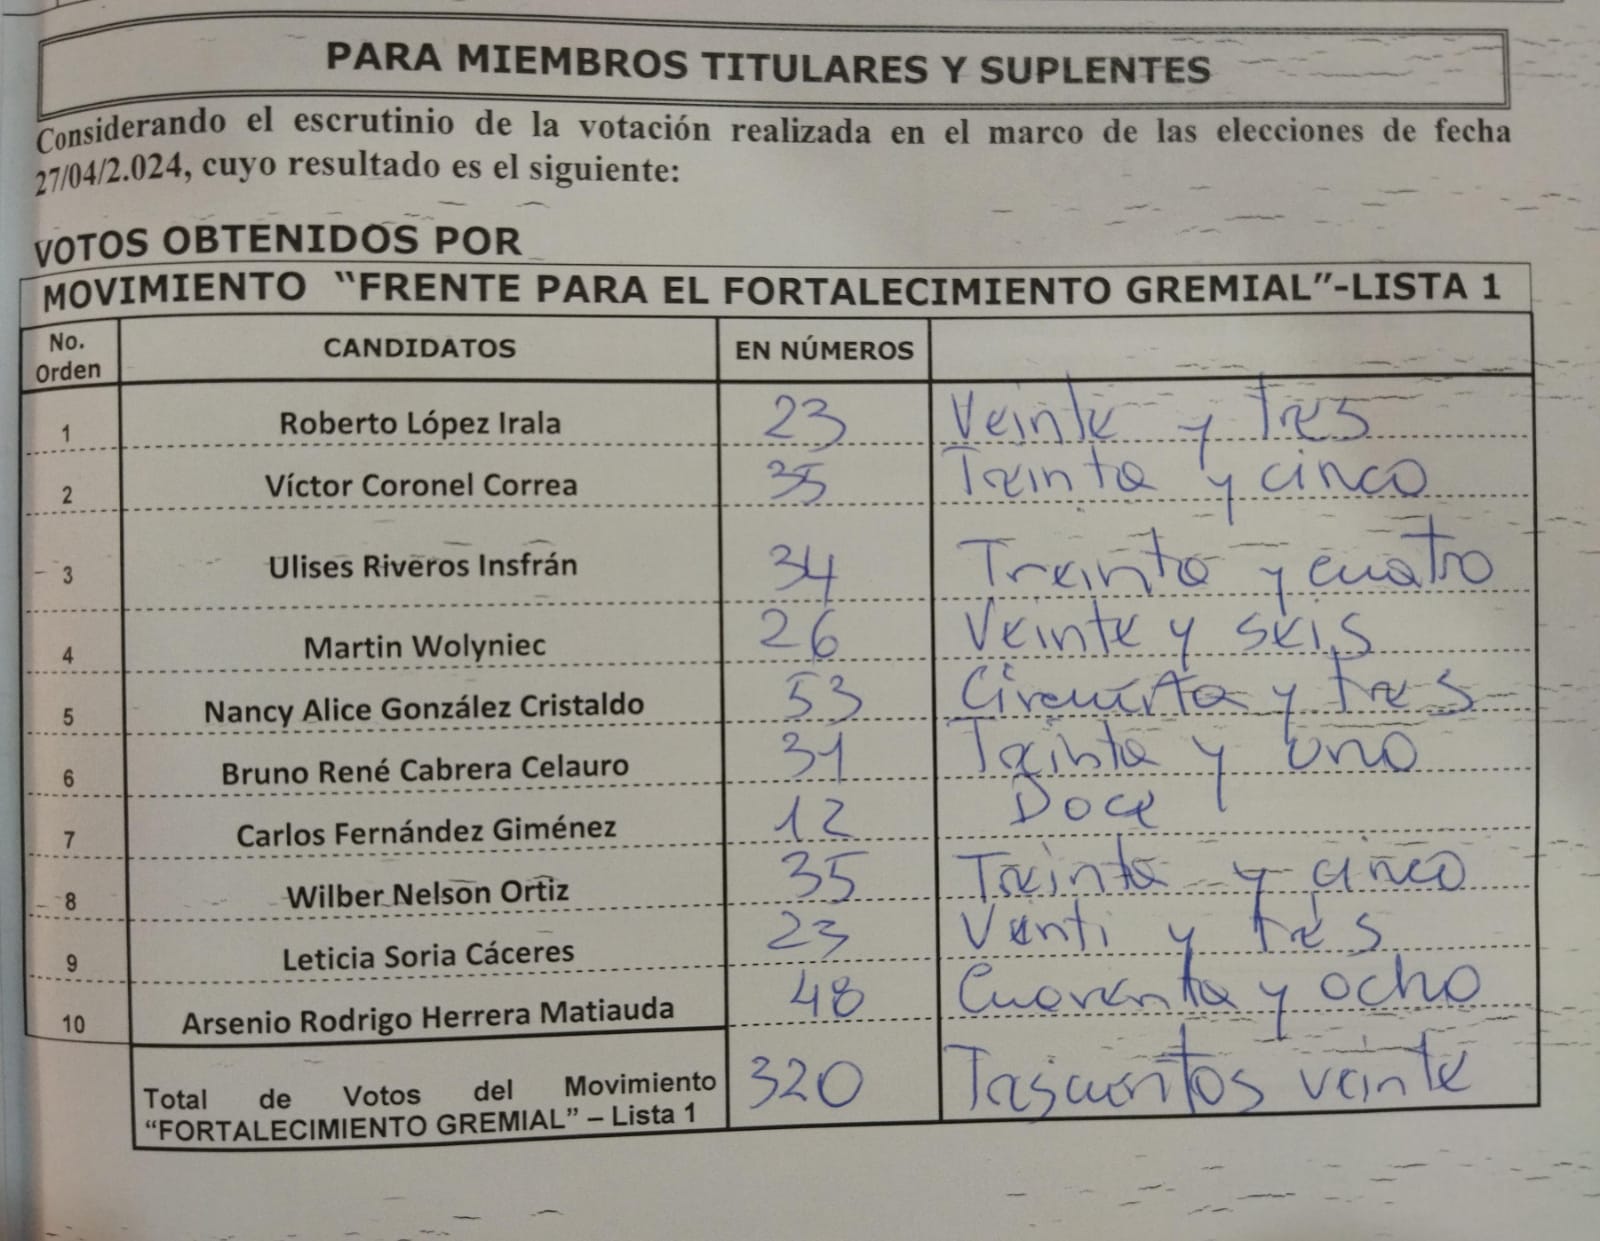 PARA MIEMBROS TITULARES Y SUPLENTES
Considerando el escrutinio de la votación realizada en el marco de las elecciones de fecha
27/04/2.024, cuyo resultado es el siguiente:
VOTOS OBTENIDOS POR
MOVIMIENTO “FRENTE PARA EL FORTALECIMIENTO GREMIAL”-LISTA 1
No. Orden CANDIDATOS EN NÚMEROS
1 Roberto López Irala 23 Veinte y tres
2 Víctor Coronel Correa 35 Treinta y cinco
3 Ulises Riveros Insfrán 34 Treinta y cuatro
4 Martin Wolyniec 26 Veinte y seis
5 Nancy Alice González Cristaldo 53 Cincuenta y tres
6 Bruno René Cabrera Celauro 31 Treinta y uno
7 Carlos Fernández Giménez 12 Doce
8 Wilber Nelson Ortiz 35 Treinta y cinco
9 Leticia Soria Cáceres 23 Venti y tres
10 Arsenio Rodrigo Herrera Matiauda 48 Cuarenta y ocho
Total de Votos del Movimiento
“FORTALECIMIENTO GREMIAL” – Lista 1 320 Trescientos veinte